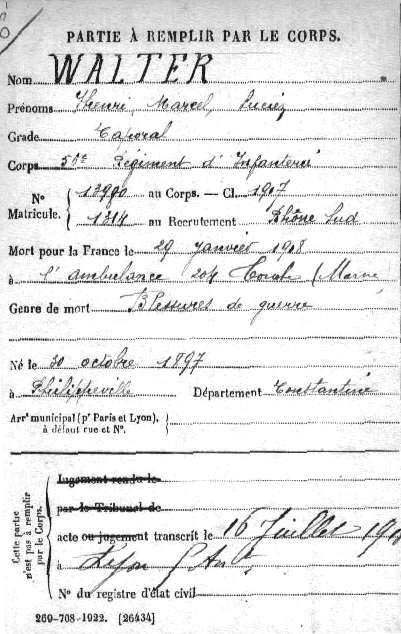 PARTIE À REMPLIR PAR LE CORPS.
Nom WALTER
Prénoms Henri, Marcel, Lucien
Grade Caporal
Corps Régiment d'Infanterie
N° 13990 au Corps. — Cl. 1917
Matricule. 1314 au Recrutement Rhône Sud
Mort pour la France le 29 janvier 1918
à l'ambulance 204 (Marne
Genre de mort Blessures de guerre
Né le 30 octobre 1897
à Philippeville Département Constantine
Arrt municipal (pr Paris et Lyon),
à défaut rue et N°.
Cette partie
n'est pas à remplir
par le Corps.
Jugement rendu le
par le Tribunal de
acte ou jugement transcrit le 16 Juillet
à Lyon
N° du registre d'état civil
269-708-1922. [26434]